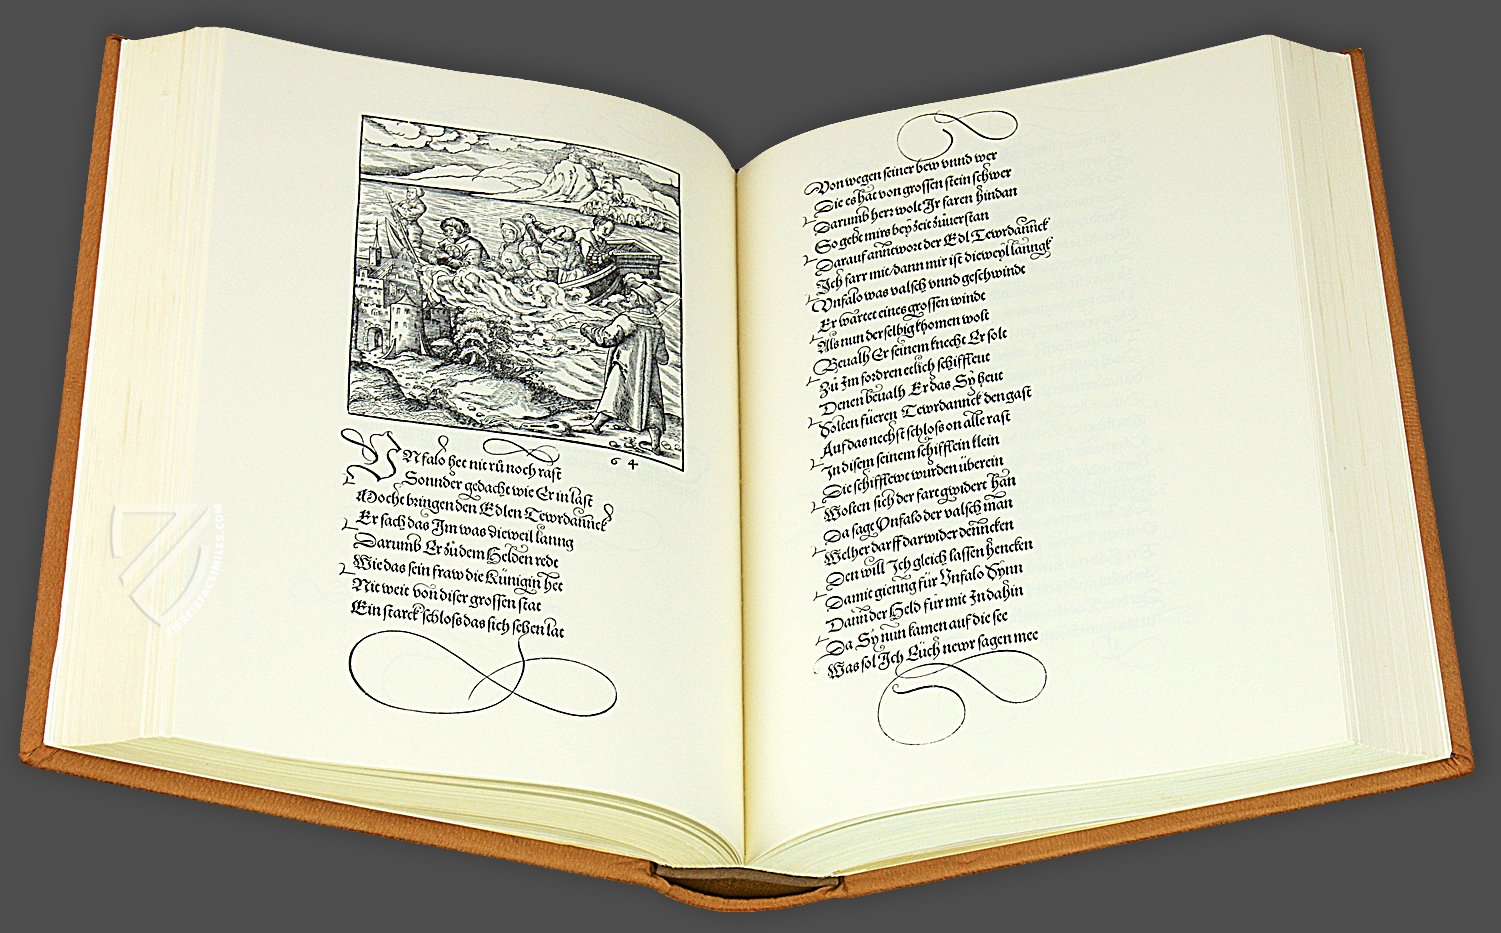 64
VNfalo het nit rů noch rast
Sonnder gedacht wie Er in last
Mocht bringen den Edlen Tewrdannck
Er sach das Im was dieweil lanng
Darumb Er zů dem Helden redt
Wie das sein fraw die Künigin het
Nit weit von diser grossen stat
Ein starck schloss das sich sehen lat
Von wegen seiner bew vnnd wer
Die es hat von grossen stein schwer
Darumb herr wolt Ir faren hindan
So gebt mirs bey zeit zůuerstan
Darauf anntwort der Edl Tewrdannck
Ich farr mit dann mir ist die weyl lanngk
Vnfalo was valsch vnnd geschwindt
Er wartet eines grossen windt
Als nun derselbig khomen wolt
Beualh Er seinem knecht Er solt
Zů Im fordren etlich schiffleut
Denen beualh Er das Sy heut
Solten füeren Tewrdannck den gast
Auf das nechst schloss on alle rast
In disem seinem schifflein klein
Die schifflewt wurden überein
Wolten sich der fart gwidert han
Da sagt Vnfalo der valsch man
Welher darff darwider denncken
Den will Ich gleich lassen hencken
Damit gienng für Vnfalo Synn
Dann der Held fůr mit In dahin
Da Sy nun kamen auf die see
Was sol Ich Eüch newr sagen mee